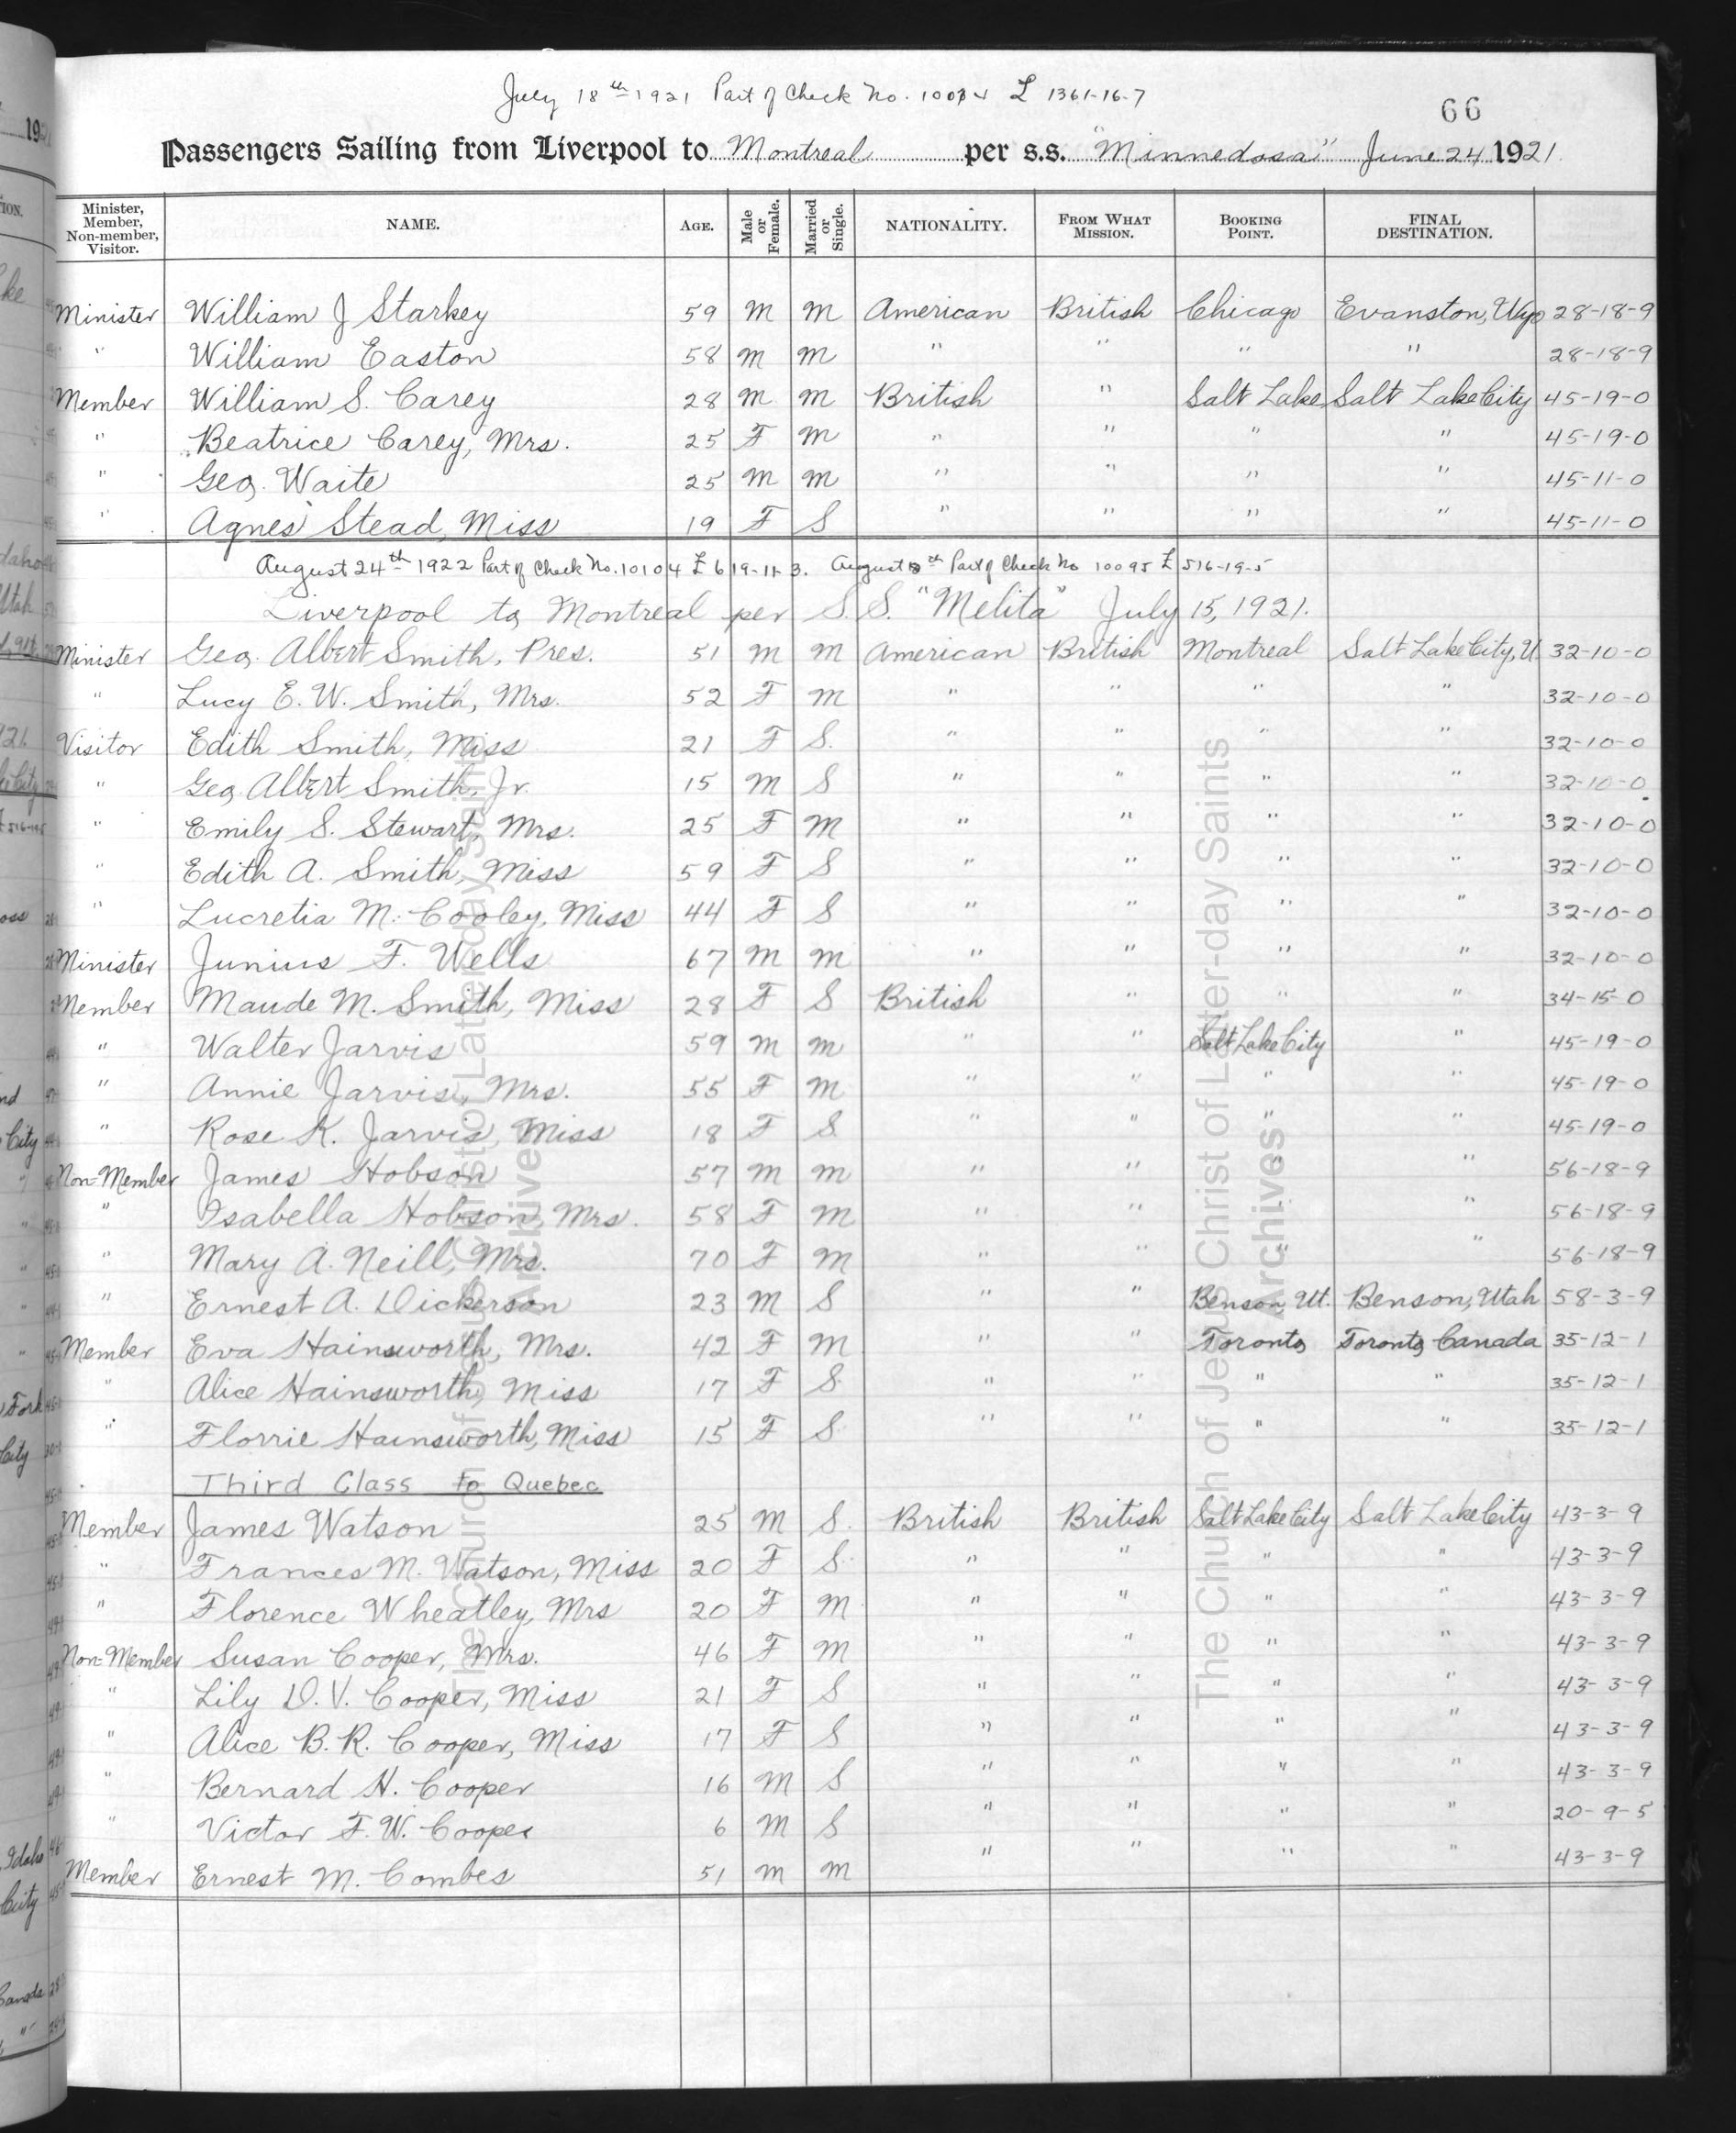 July 18th 1921 Part of Check No. 10074 £ 1361-16-7
66
Passengers Sailing from Liverpool to Montreal per s.s. "Minnedosa" June 24 1921.
Minister, Member, Non-member, Visitor. NAME. AGE. Male or Female. Married or Single. NATIONALITY. FROM WHAT MISSION. BOOKING POINT. FINAL DESTINATION.
Minister William J Starkey 59 M M American British Chicago Evanston, Wyo 28-18-9
" William Easton 58 M M " " " " 28-18-9
Member William S. Carey 28 M M British " Salt Lake Salt Lake City 45-19-0
" Beatrice Carey, Mrs. 25 F M " " " " 45-19-0
" Geo. Waite 25 M M " " " " 45-11-0
" Agnes Stead, Miss 19 F S " " " " 45-11-0
August 24th 1922 Part of Check No. 10104 £ 619-11-3. August 8th Part of Check No 10095 £ 516-19-5
Liverpool to Montreal per S.S. "Melita" July 15, 1921.
Minister Geo. Albert Smith, Pres. 51 M M American British Montreal Salt Lake City, U 32-10-0
" Lucy E. W. Smith, Mrs. 52 F M " " " " 32-10-0
Visitor Edith Smith, Miss 21 F S. " " " " 32-10-0
" Geo. Albert Smith, Jr. 15 M S " " " " 32-10-0
" Emily S. Stewart, Mrs. 25 F M " " " " 32-10-0
" Edith A. Smith, Miss 59 F S " " " " 32-10-0
" Lucretia M. Cooley, Miss 44 F S " " " " 32-10-0
Minister Junius F. Wells 67 M M " " " " 32-10-0
Member Maude M. Smith, Miss 28 F S British " " " 34-15-0
" Walter Jarvis 59 M M " " Salt Lake City " 45-19-0
" Annie Jarvis, Mrs. 55 F M " " " " 45-19-0
" Rose K. Jarvis, Miss 18 F S " " " " 45-19-0
Non-Member James Hobson 57 M M " " " 56-18-9
" Isabella Hobson, Mrs. 58 F M " " " 56-18-9
" Mary A. Neill, Mrs. 70 F M " " " " 56-18-9
" Ernest A. Dickerson 23 M S " " Benson, Ut. Benson, Utah 58-3-9
Member Eva Hainsworth, Mrs. 42 F M " " Toronto Toronto, Canada 35-12-1
" Alice Hainsworth, Miss 17 F S " " " " 35-12-1
" Florrie Hainsworth, Miss 15 F S " " " " 35-12-1
Third Class to Quebec
Member James Watson 25 M S. British British Salt Lake City Salt Lake City 43-3-9
" Frances M. Watson, Miss 20 F S. " " " " 43-3-9
" Florence Wheatley, Mrs 20 F M " " " " 43-3-9
Non-Member Susan Cooper, Mrs. 46 F M " " " " 43-3-9
" Lily D. V. Cooper, Miss 21 F S " " " " 43-3-9
" Alice B. R. Cooper, Miss 17 F S " " " " 43-3-9
" Bernard H. Cooper 16 M S " " " " 43-3-9
" Victor F. W. Cooper 6 M S " " " " 20-9-5
Member Ernest M. Combes 51 M M " " " " 43-3-9
The Church of Jesus Christ of Latter-day Saints
Archives
The Church of Jesus Christ of Latter-day Saints
Archives